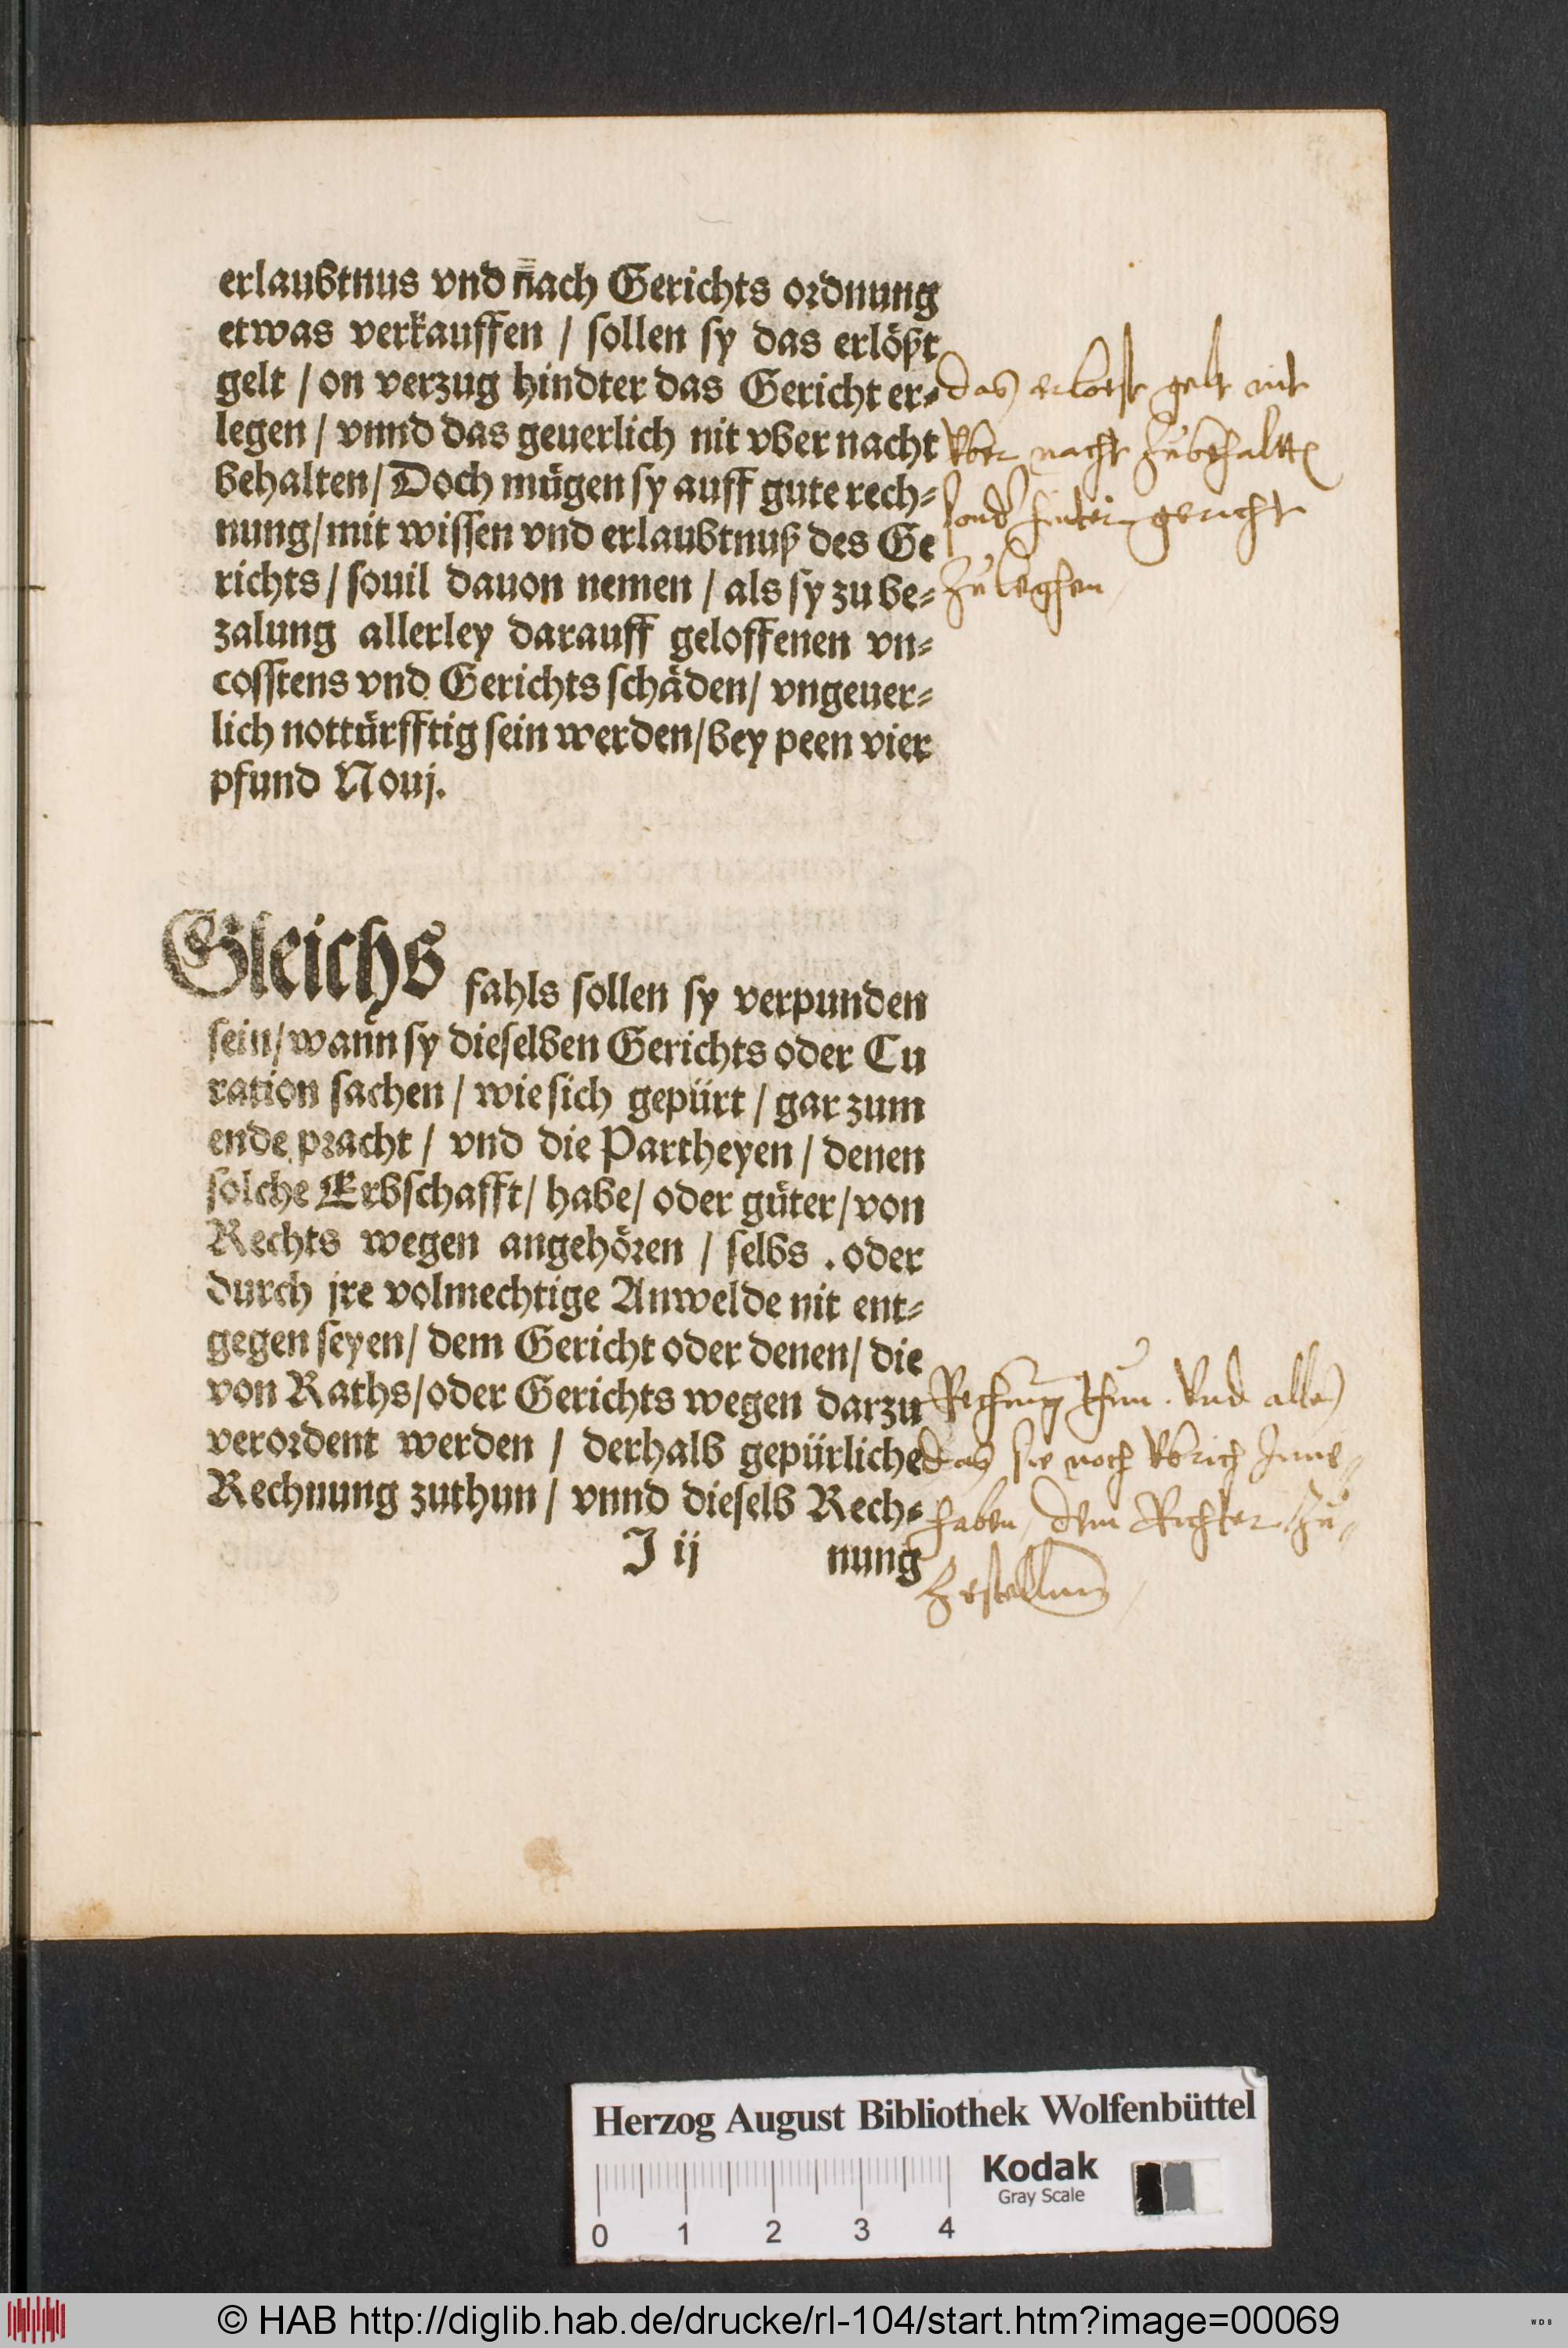 erlaubtnus vnd nach Gerichts ordnung
etwas verkauffen / sollen sy das erlößt
gelt / on verzug hindter das Gericht er⸗
legen / vnnd das geuerlich nit vber nacht
behalten / Doch mügen sy auff gute rech⸗
nung / mit wissen vnd erlaubtnuß des Ge
richts / souil dauon nemen / als sy zu be⸗
zalung allerley darauff geloffenen vn⸗
cosstens vnd Gerichts schäden / vngeuer⸗
lich nottürfftig sein werden / bey peen vier
pfund Nouj.
das erloest gelt nit
vber nacht zubehaltten
sonder hinter gericht
zuleghen
Gleichs fahls sollen sy verpunden
sein / wann sy dieselben Gerichts oder Cu
ration sachen / wie sich gepürt / gar zum
ende pracht / vnd die Partheyen / denen
solche Erbschafft / habe / oder güter / von
Rechts wegen angehören / selbs . oder
durch jre volmechtige Anwelde nit ent⸗
gegen seyen / dem Gericht oder denen / die
von Raths / oder Gerichts wegen darzu
verordent werden / derhalb gepürliche
Rechnung zuthun / vnnd dieselb Rech⸗
J ij nung
Rechnung thun . vnd alles
das sie noch vbrich Inne⸗
haben dem Richter zu⸗
Herzog August Bibliothek Wolfenbüttel
Kodak
Gray Scale
0 1 2 3 4
© HAB http://diglib.hab.de/drucke/rl-104/start.htm?image=00069
WDB